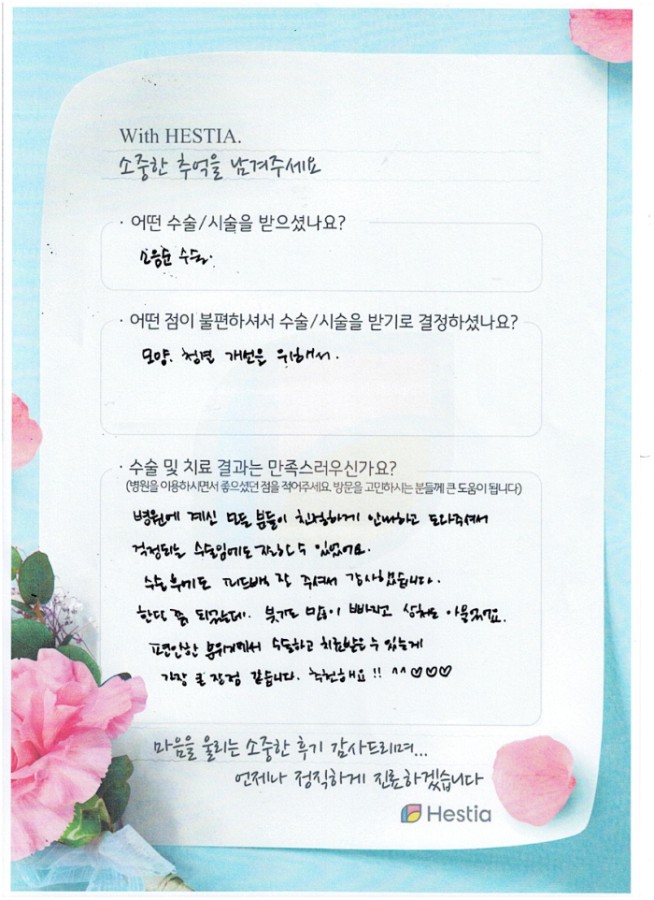 With HESTIA.
소중한 추억을 남겨주세요
· 어떤 수술/시술을 받으셨나요?
소음순 수술.
· 어떤 점이 불편하셔서 수술/시술을 받기로 결정하셨나요?
모양. 청결 개선을 위해서.
· 수술 및 치료 결과는 만족스러우신가요?
(병원을 이용하시면서 좋으셨던 점을 적어주세요. 방문을 고민하시는 분들께 큰 도움이 됩니다)
병원에 계신 모든 분들이 친절하게 안내하고 도와주셔서
걱정되는 수술임에도 잘 할 수 있었어요.
수술후기도 피드백 잘 주셔서 감사했습니다.
한달 쯤 되었는데. 붓기도 많이 빠지고 상처도 아물었어요.
편안한 분위기에서 수술하고 치료받을 수 있는게
가장 큰 장점 같습니다. 추천해요 !! ^^ ♡♡♡
마음을 울리는 소중한 후기 감사드리며...
언제나 정직하게 진료하겠습니다
Hestia